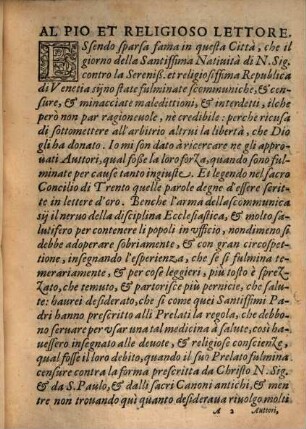 AL PIO ET RELIGIOSO LETTORE.
ESsendo sparsa fama in questa Città, che il
giorno della Santissima Natiuità di N. Sig.
contro la Sereniss. et religiosissima Republica
di Venetia sijno state fulminate scommuniche, & cen-
sure, & minacciate maledittioni, & interdetti, ilche
però non par ragioneuole, nè credibile: perchè ricusa
di sottomettere all'arbitrio altrui la libertà, che Dio
gli ha donato. Io mi son dato à ricercare ne gli appro-
uati Auttori, qual fose la loro forza, quando sono ful-
minate per cause tanto ingiuste. Et legendo nel sacro
Concilio di Trento quelle parole degne d'essere scrit-
te in lettere d'oro. Benche l'arma della scommunica
sij il neruo della disciplina Ecclesiastica, & molto sa-
lutifero per contenere li popoli in vfficio, nondimeno si
debbe adoperare sobriamente, & con gran circospet-
tione, insegnando l'esperienza, che se si fulmina te-
merariamente, & per cose leggieri, più tosto è sprez-
zato, che temuto, & partorisce più pernicie, che salu-
te: haurei desiderato, che sì come quei Santissimi Pa-
dri hanno prescritto alli Prelati la regola, che debbo-
no seruare per vsar vna tal medicina à salute, così ha-
uessero insegnato alle deuote, & religiose conscienze,
qual fosse il loro debito, quando il suo Prelato fulmina
censure contra la forma prescritta da Christo N. Sig.
& da S. Paulo, & dalli sacri Canoni antichi, & men-
tre non trouando quì quanto desideraua riuolgo molti
A 2 Auttori,